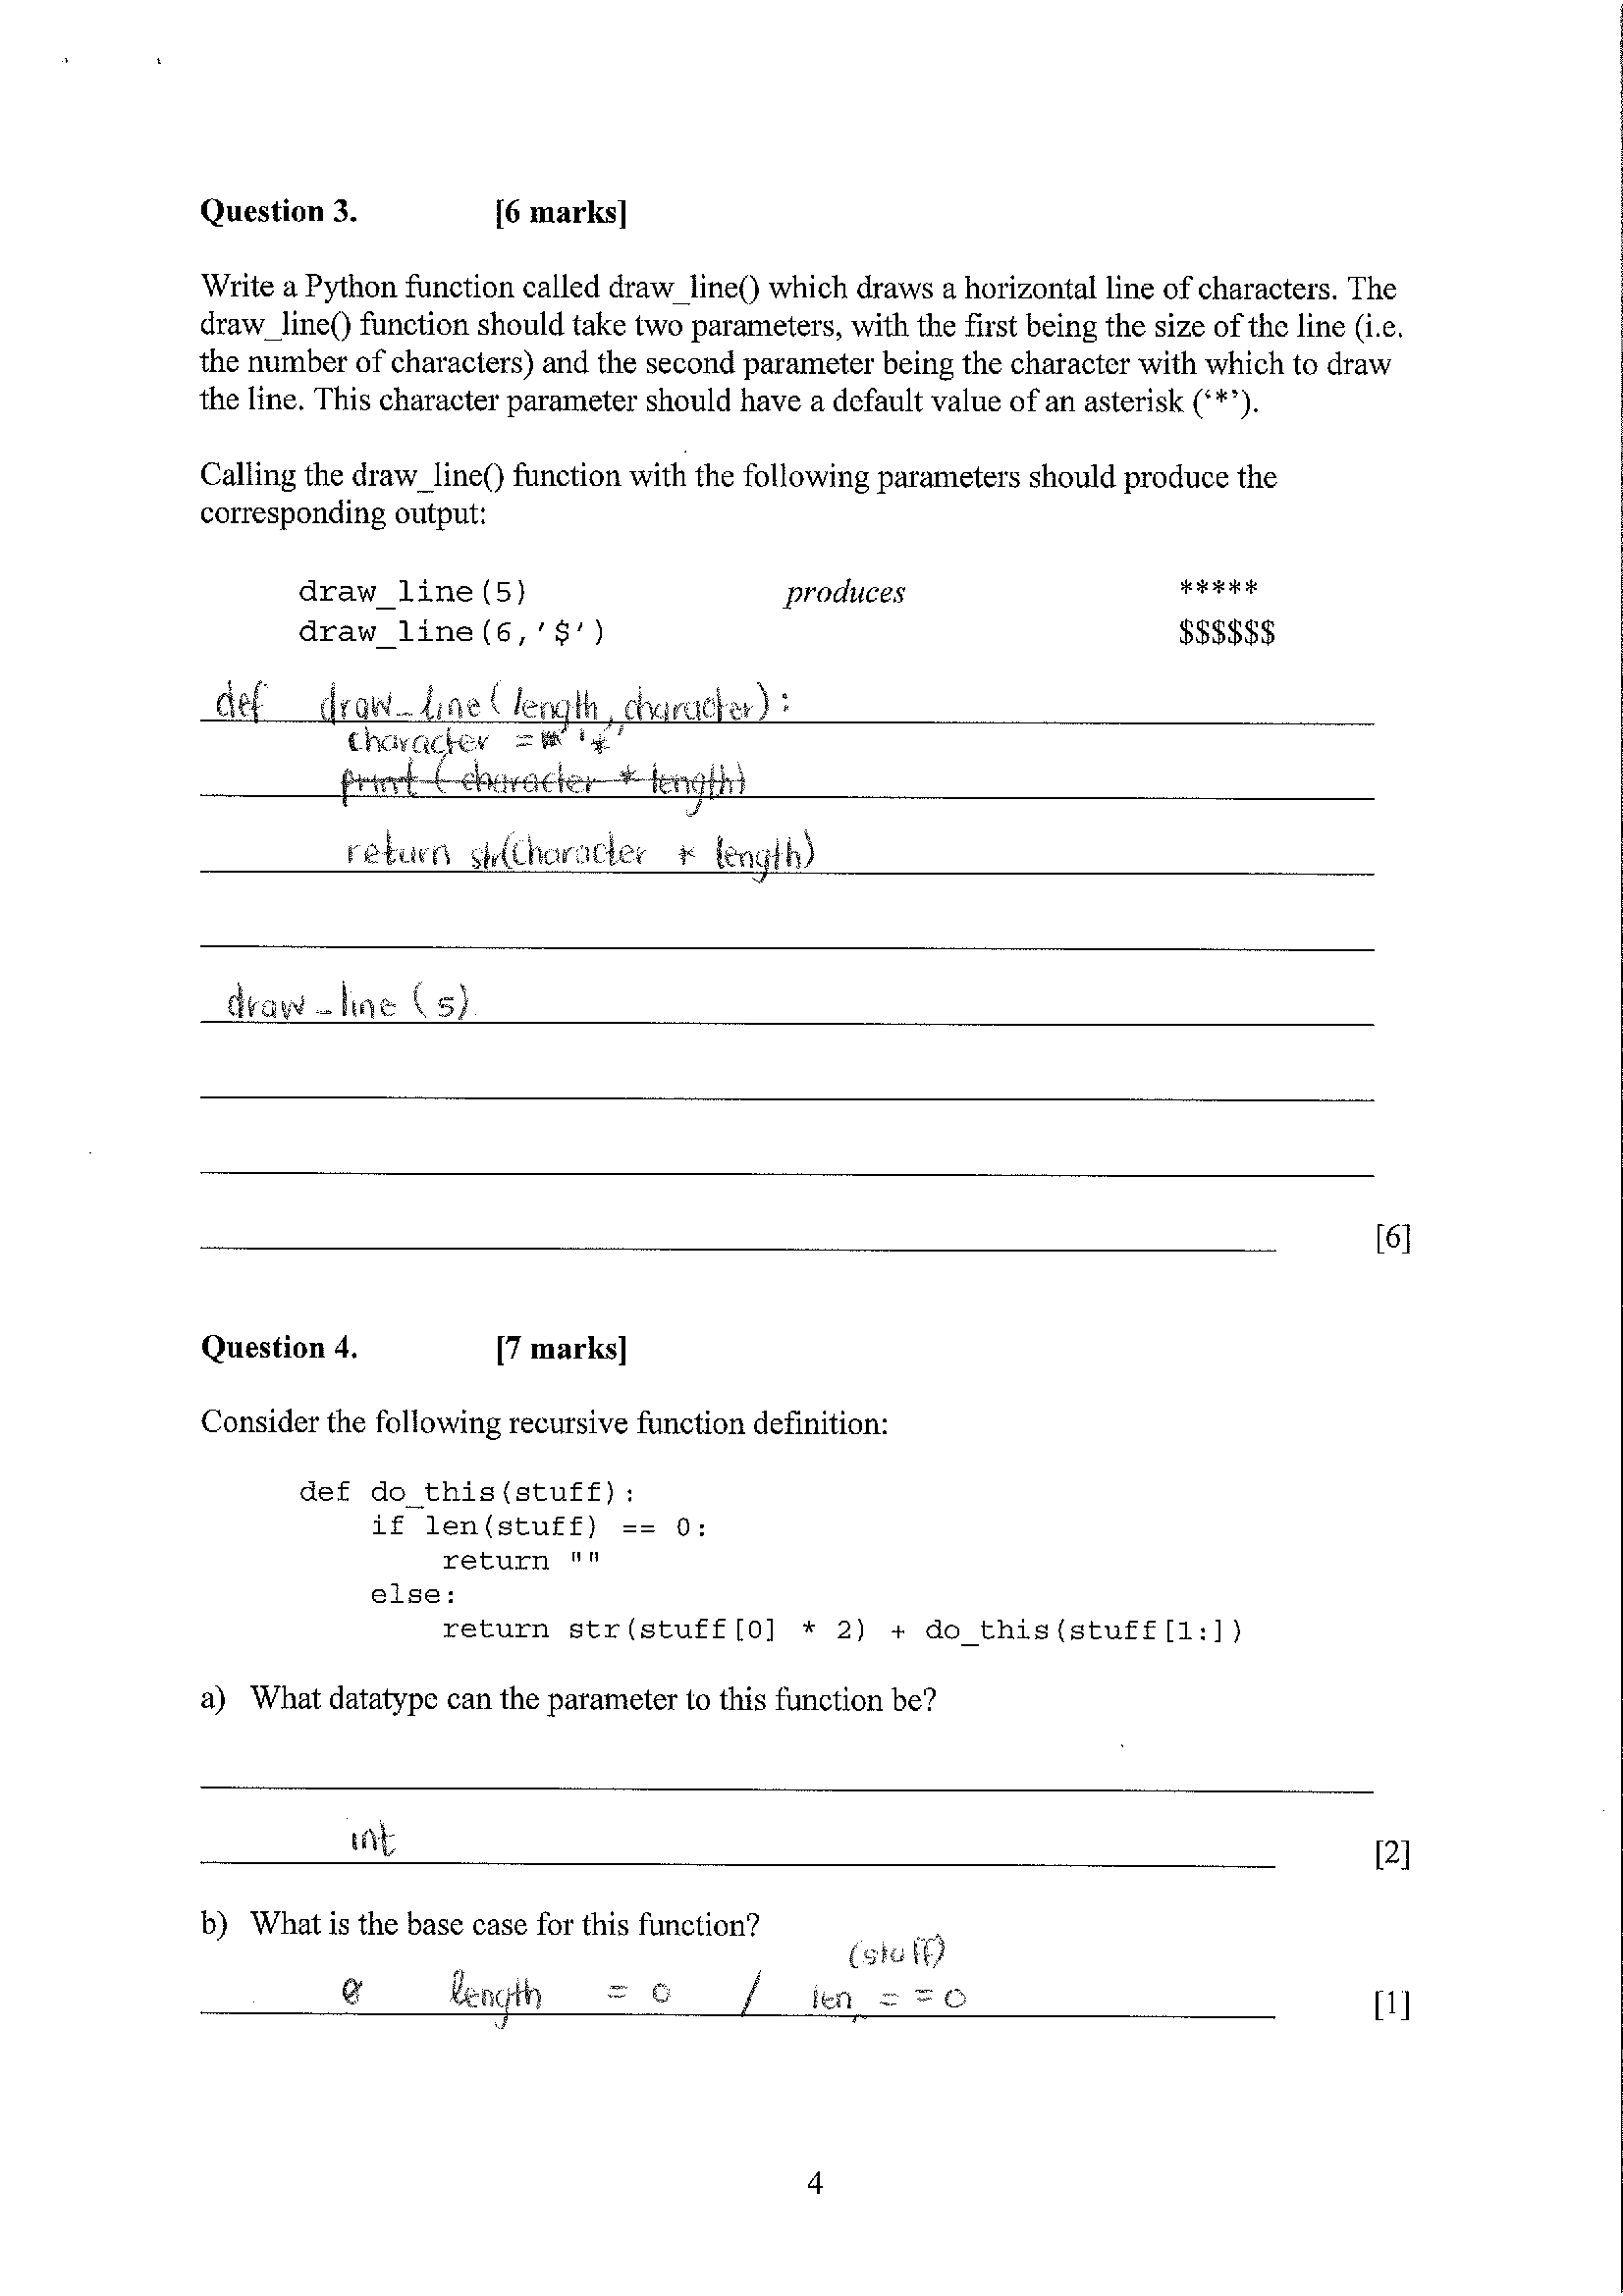 Question 3. [6 marks]
Write a Python function called draw_line() which draws a horizontal line of characters. The
draw_line() function should take two parameters, with the first being the size of the line (i.e.
the number of characters) and the second parameter being the character with which to draw
the line. This character parameter should have a default value of an asterisk (‘*’).
Calling the draw_line() function with the following parameters should produce the
corresponding output:
draw_line(5) produces *****
draw_line(6,'$') $$$$$$
def draw_line(length, character):
character = '*'
print (character * length)
return str(Character * length)
draw_line (5)
[6]
Question 4. [7 marks]
Consider the following recursive function definition:
def do_this(stuff):
if len(stuff) == 0:
return ""
else:
return str(stuff[0] * 2) + do_this(stuff[1:])
a) What datatype can the parameter to this function be?
int [2]
b) What is the base case for this function?
(stuff)
length = 0 / len == 0 [1]
4